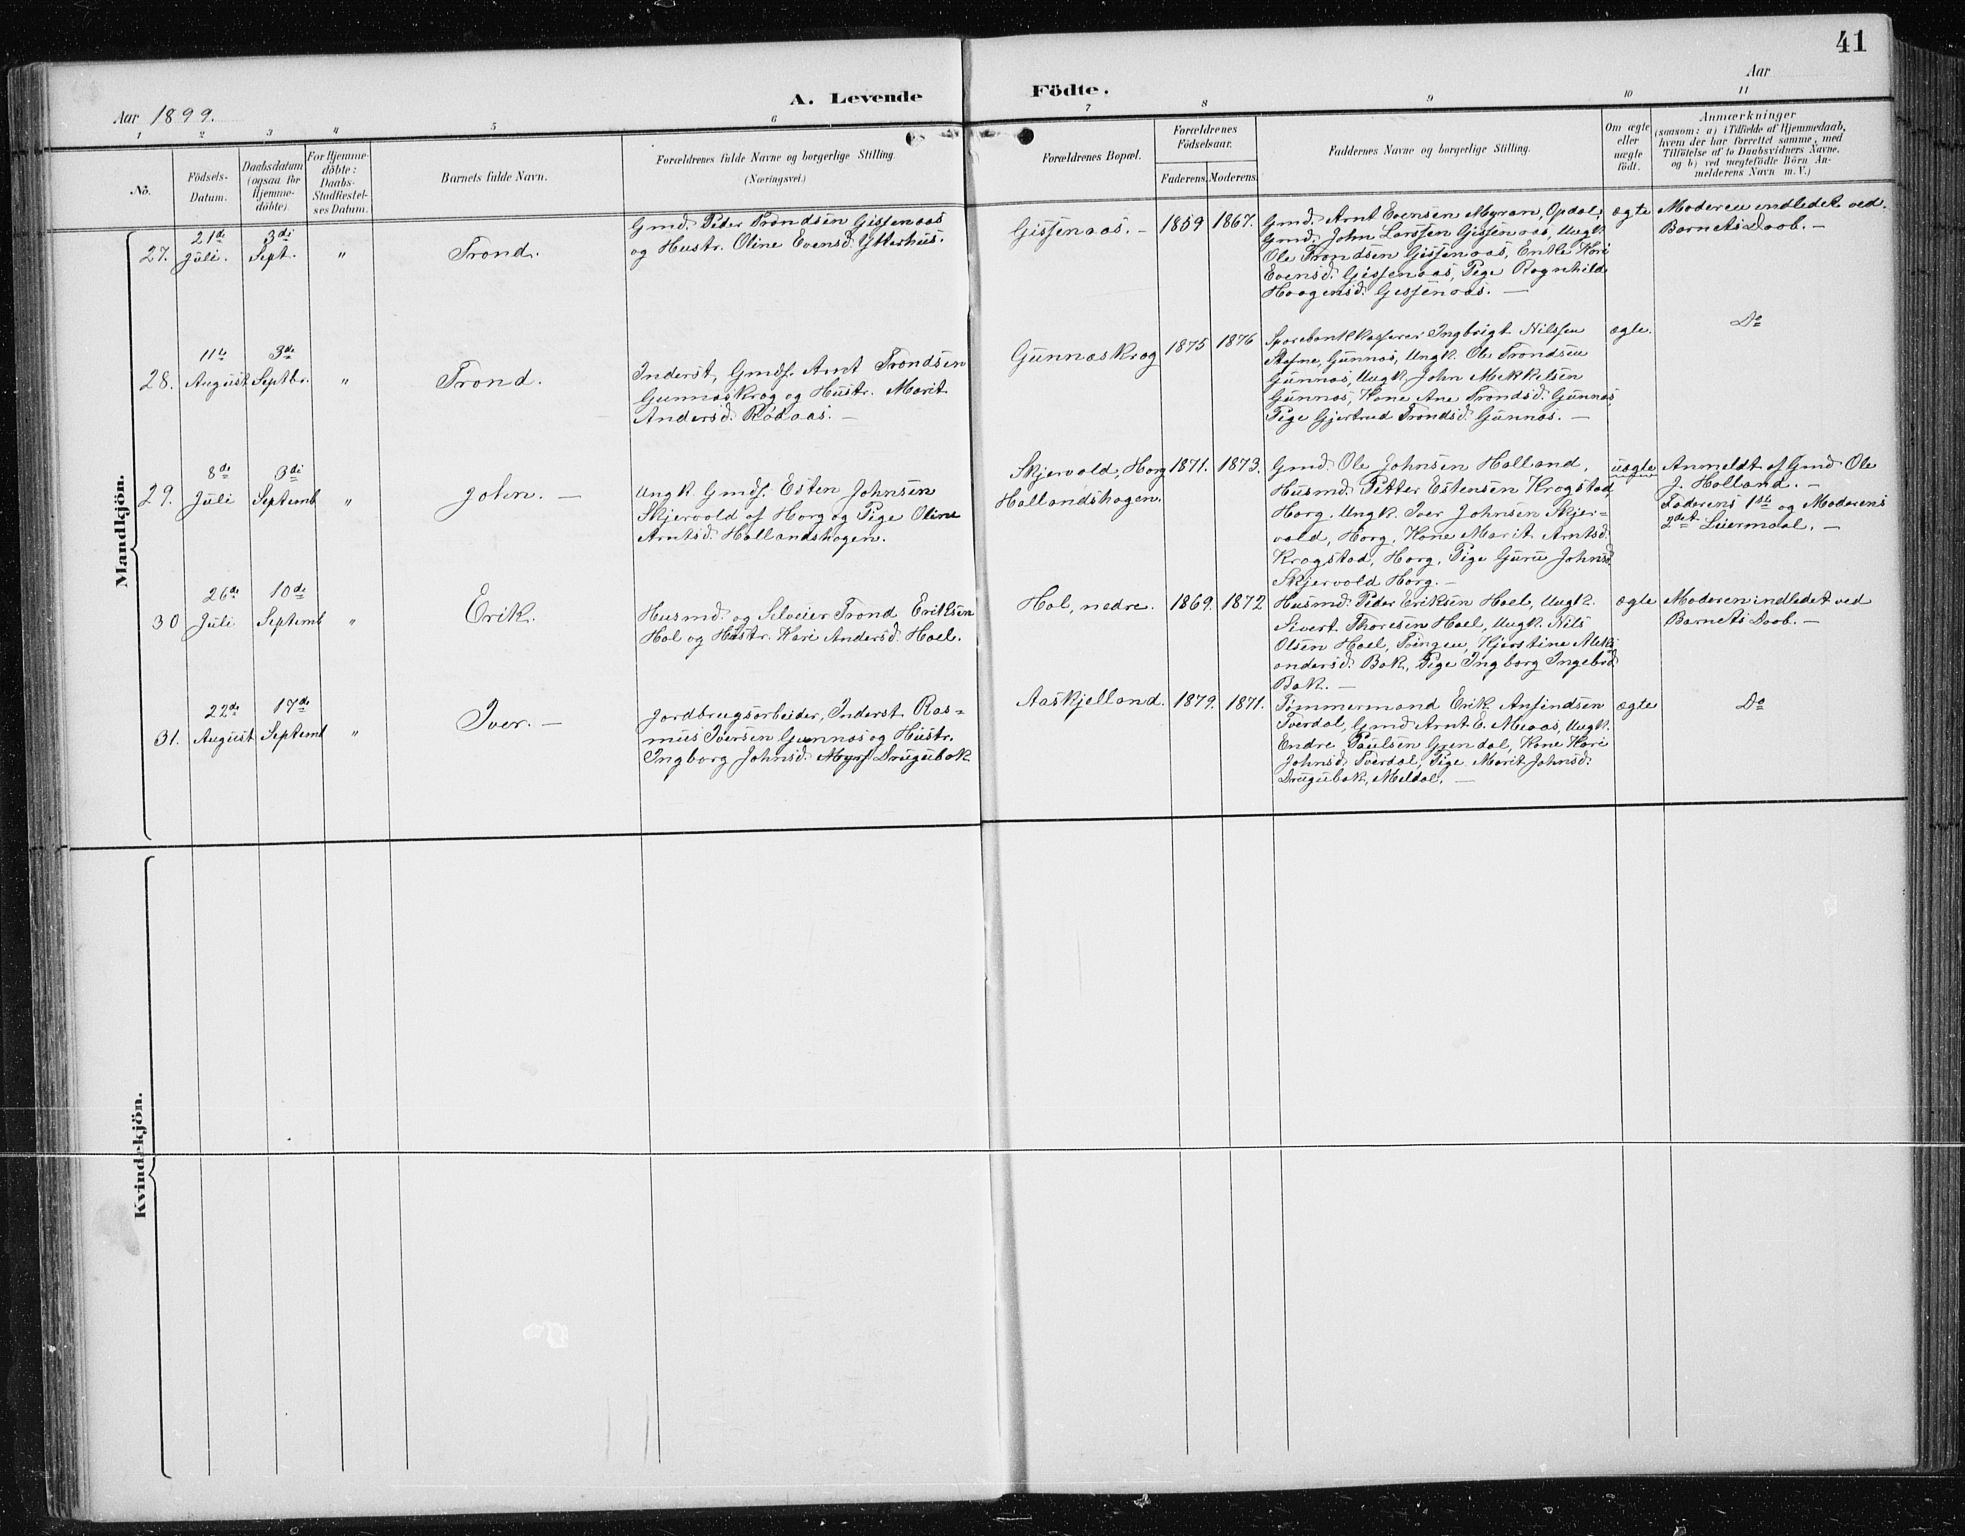 41
Aar 1899.
A. Levende Födte.
Aar
1 2 3 4 5 6 7 8 9 10 11
No.
Födsels-
Datum.
Daabsdatum
(ogsaa for
Hjemme-
döbte).
For Hjemme-
döbte:
Daabs-
Stadfæstel-
ses Datum.
Barnets fulde Navn.
Forældrenes fulde Navne og borgerlige Stilling.
(Næringsvei.)
Forældrenes Bopæl.
Forældrenes
Födselsaar.
Faderens. Moderens.
Faddernes Navne og borgerlige Stilling.
Om ægte
eller
uægte
födt.
Anmærkninger
(saasom: a) i Tilfælde af Hjemmedaab,
hvem der har forrettet samme, med
Tilföielse af to Daabsvidners Navne,
og b) ved uægtefödte Börn An-
melderens Navn m. V.)
Mandkjön.
27.
21de
Juli.
3di
Sept.
"
Trond.
Gmd. Peder Trondsen Gisjenaas
og Hustr. Oline Evensd. Ytterhus.
Gisjenaas. —
1859 1867.
Gmd. Arnt Evensen Myran, Opdal,
Gmd. John Larssen Gisjenaas, Ungk.
Ole Trondsen Gisjenaas, Enke Kari
Evensd. Gisjenaas, Pige Ragnhild
Haagensd. Gisjenaas. —
ægte
Moderen indledet ved
Barnets Daab. —
28.
11te
August
3di
Septbr.
"
Trond.
Inderst, Gmds. Arnt Trondsen
Gunnaskrog og Hustr. Marit
Andersd. Rödaas. —
Gunnaskrog
1875 1876
Sparebankkasserer Ingbrigt Nilssen
Stafne, Gunnas, Ungk. Ole Trondsen
Gunnas, Ungk. John Mekkelsen
Gunnas, Kone Ane Trondsd. Gunnas,
Pige Gjertrud Trondsd. Gunnas. —
ægte.
Do
29.
8de
Juli
3di
Septemb
"
John. —
Ungk. Gmds. Esten Johnsen
Skjervold af Horg og Pige Oline
Arntsd. Hollandshagen.
Skjervold, Horg
Hollandshagen.
1871. 1873.
Gmd. Ole Johnsen Holland,
Husmd. Petter Estensen Krogstad
Horg, Ungk. Iver Johnsen Skjer-
vold, Horg, Kone Marit Arntsd.
Krogstad, Horg, Pige Guru Johnsd
Skjervold Horg. —
uægte
Anmeldt af Gmd Ole
J. Holland. —
Faderens 1ste og Moderens
2det Leiermaal. —
30
26de
Juli
10de
Septemb
"
Erik.
Husmd. og Selveier Trond Eriksen
Hol og Hustr. Kari Andersd. Hoel.
Hol, nedre.
1869. 1872
Husmd. Peder Eriksen Hoel, Ungk.
Sivert Thoresen Hoel, Ungk. Nils
Olsen Hoel, Tvingen, Kjerstine Alek-
andersd. Bak, Pige Ingborg Ingebrd.
Bak. —
ægte
Moderen indledet ved
Barnets Daab. —
31.
22de
August
17de
Septemb
"
Iver. —
Jordbrugsarbeider, Inderst Ras-
mus Iversen Gunnas og Hustr.
Ingborg Johnsd. Drugubak
Aaskjelland.
1879. 1871.
Timmermand Erik Anfindsen
Tverdal, Gmd Arnt E. Meaas, Ungk.
Endre Paulsen Grendal, Kone Kari
Johnsd. Tverdal, Pige Marit Johnsd.
Drugubak, Meldal. —
ægte
Do
Kvindekjön.